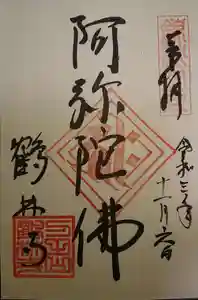 奉拝
令和三年
十一月六日
阿弥陀佛
鶴林寺